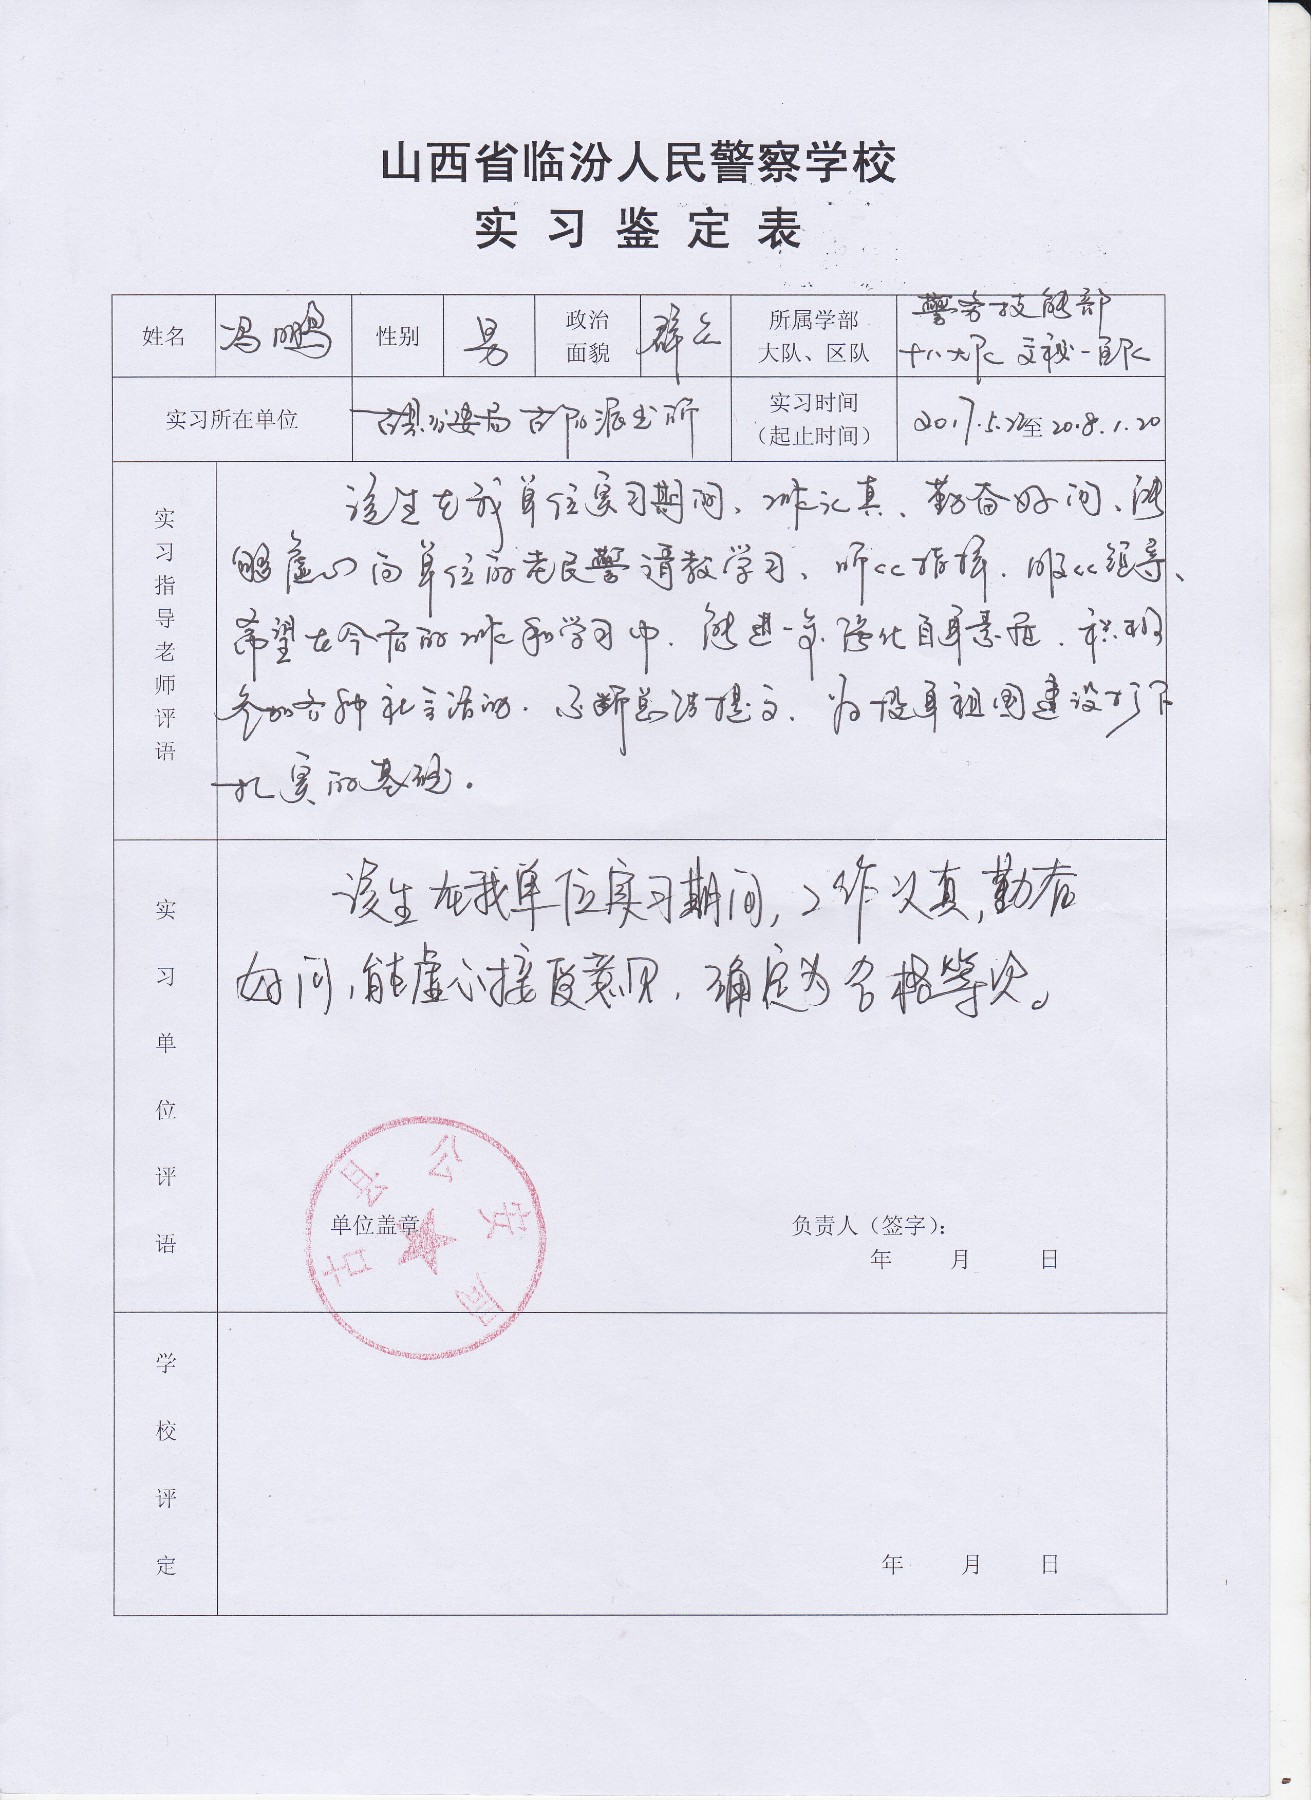 山西省临汾人民警察学校
实习鉴定表
姓名 冯鹏 性别 男 政治面貌 群众 所属学部大队、区队 警务技能部 十八大队 文秘一区队
实习所在单位 古县公安局古阳派出所 实习时间（起止时间） 2017.5.22至2018.1.20
实习指导老师评语
该生在我单位实习期间、工作认真、勤奋好问、能
够虚心向单位的老民警请教学习、听从指挥、服从领导、
希望在今后的工作和学习中、能进一步强化自身素质、积极
参加各种社会活动、不断总结提高、为投身祖国建设打下
扎实的基础。
实习单位评语
该生在我单位实习期间,工作认真,勤奋
好问,能虚心接受意见,确定为合格等次。
古县公安局
单位盖章 负责人（签字）：
年 月 日
学校评定
年 月 日